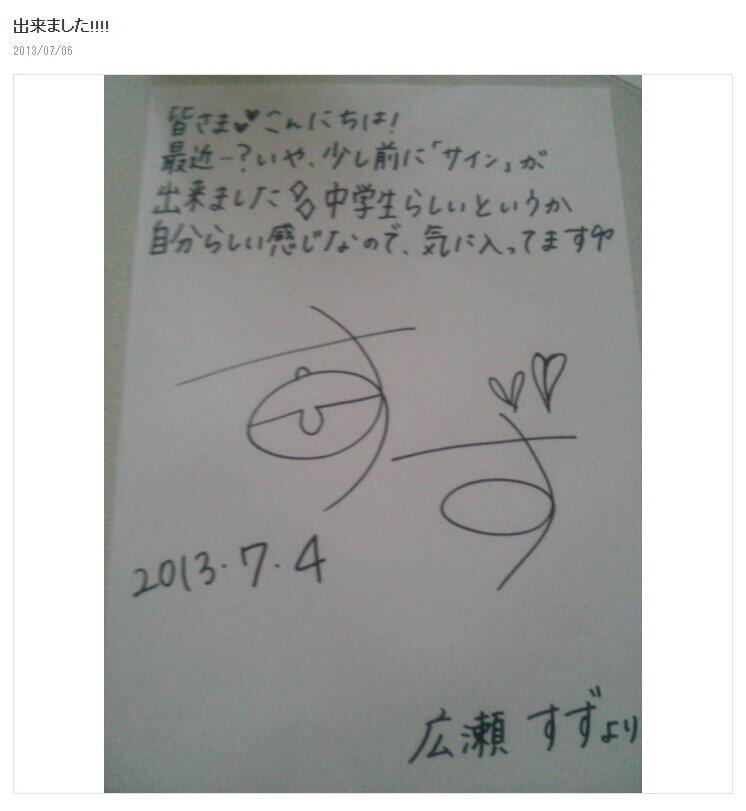 出来ました!!!!
2013/07/06
皆さま♥♥こんにちは!
最近ー?いや、少し前に「サイン」が
出来ました◇◇中学生らしいというか
自分らしい感じなので、気に入ってます
すず
2013.7.4
広瀬 すずより